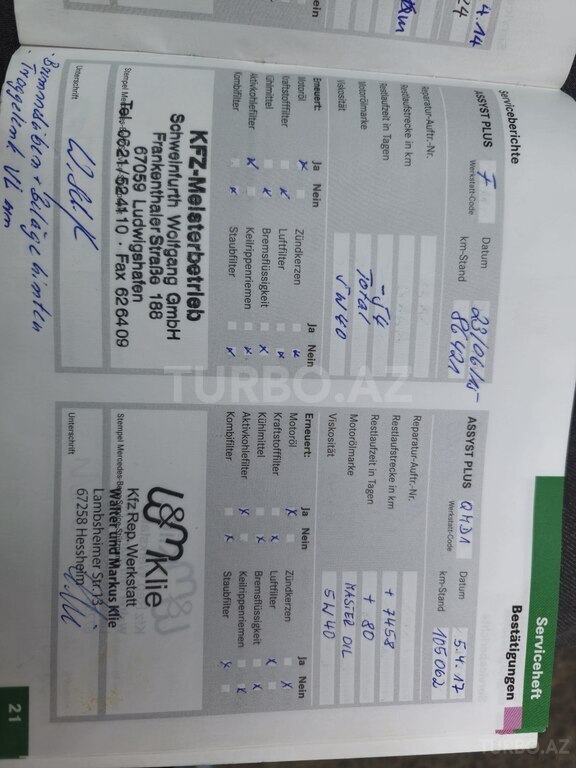 4.14
24
km
Serviceberichte
ASSYST PLUS
Werkstatt-Code
Datum 23/06/15
km-Stand 80421
Reparatur-Auftr.-Nr.
Restlaufstrecke in km
Restlaufzeit in Tagen -54
Motorölmarke Total
Viskosität 5W40
Erneuert: Ja Nein Ja Nein
Motoröl x Zündkerzen x
Kraftstofffilter x Luftfilter x
Kühlmittel x Bremsflüssigkeit x
Aktivkohlefilter x Keilrippenriemen x
Kombifilter x Staubfilter x
KFZ-Meisterbetrieb
Schweinfurth Wolfgang GmbH
Frankenthaler Straße 188
67059 Ludwigshafen
Tel. 0621/524110 · Fax 626409
Unterschrift
· Bremsscheiben + Beläge hinten
Serviceheft
Bestätigungen
ASSYST PLUS
Werkstatt-Code
Datum 5.4.17
km-Stand 105062
Reparatur-Auftr.-Nr.
Restlaufstrecke in km + 7458
Restlaufzeit in Tagen + 80
Motorölmarke MASTER OIL
Viskosität 5W40
Erneuert: Ja Nein Ja Nein
Motoröl x Zündkerzen x
Kraftstofffilter x Luftfilter x
Kühlmittel x Bremsflüssigkeit x
Aktivkohlefilter x Keilrippenriemen x
Kombifilter x Staubfilter x
W&M Klie
Kfz Rep. Werkstatt
Walter und Markus Klie
Lambsheimer Str. 13
67258 Hessheim
Unterschrift
21
TURBO.AZ
TURBO.AZ